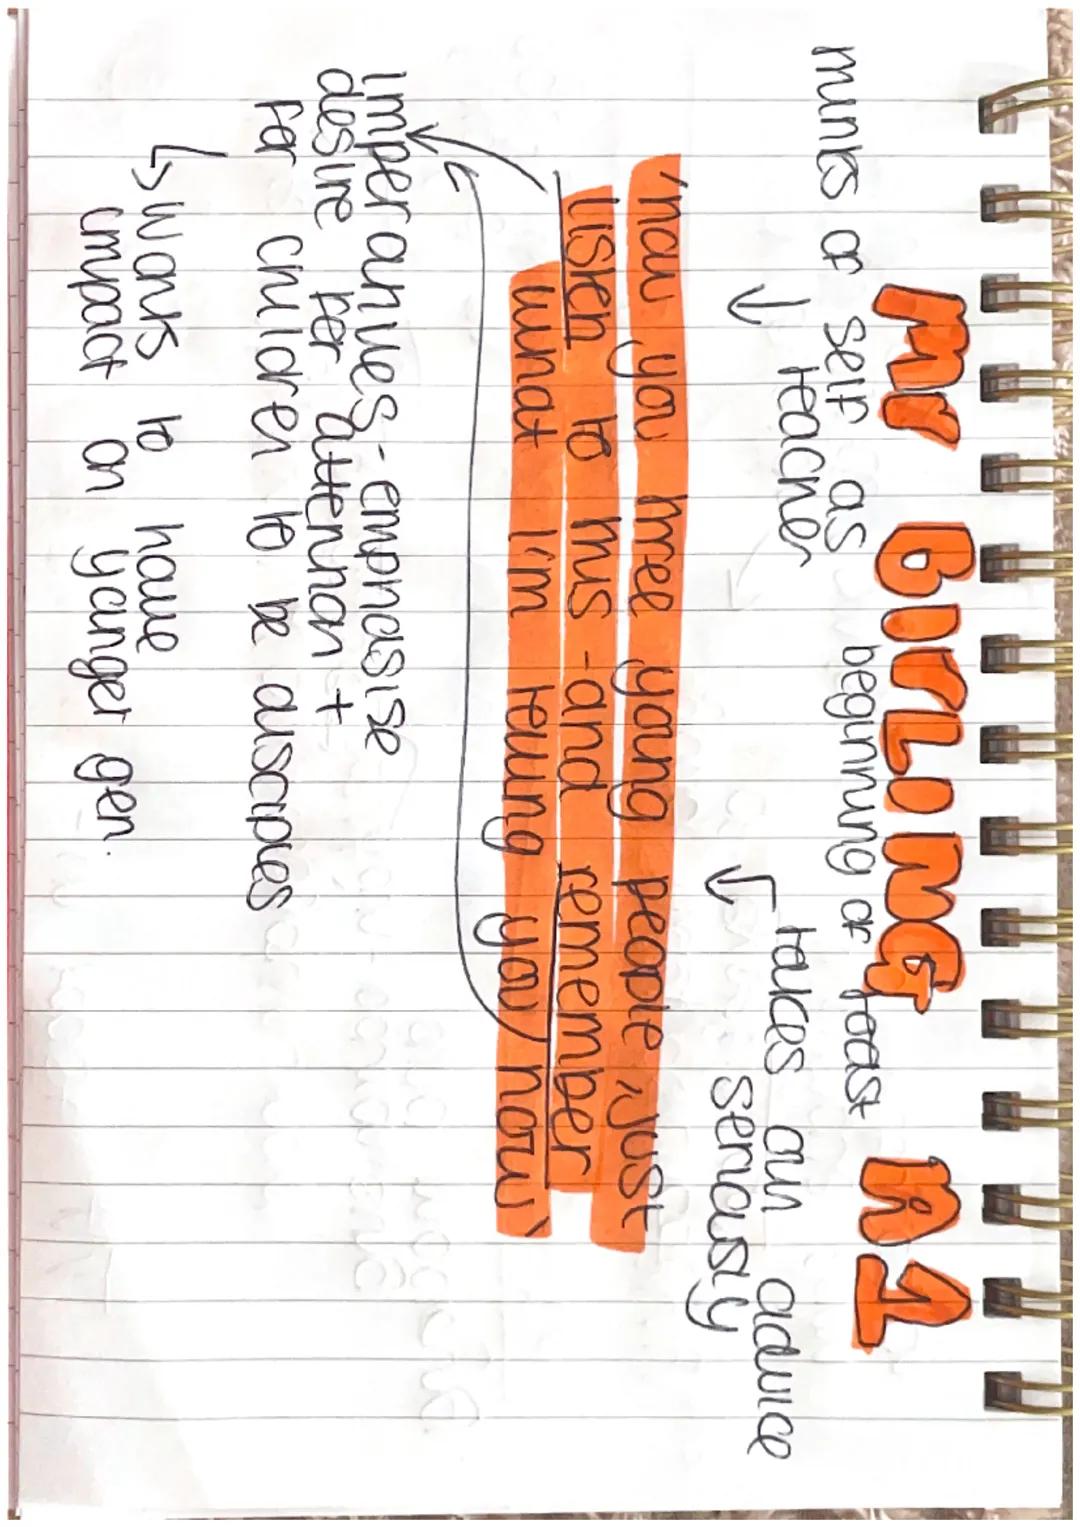 Mr BIRLING A1
thinks of self as teacher
beginning of feast
takes own advice seriously
'now you three young people, just
listen to this - and remember
what I'm telling you now'
Imperatives - emphasise
desire for attention +
for children to be disciples
↳ wants to have
impact on younger gen.